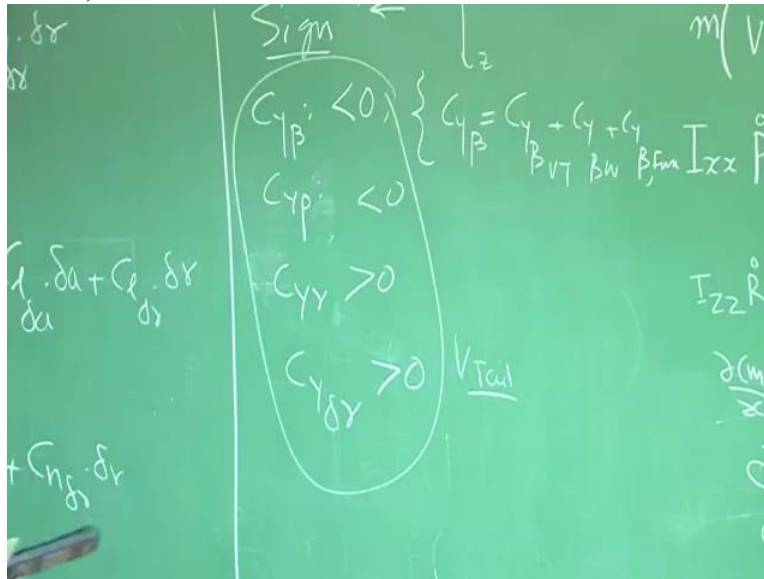 . δr
δr
C_l_δa . δa + C_l_δr . δr
+ C_n_δr . δr
Sign ←
z
C_y_β : < 0, { C_y_β = C_y_β_VT + C_y_βW + C_y_β,Fus
C_yp : < 0
C_yr > 0
C_y_δr > 0 V_Tail
m( V
I_xx Ṗ
I_zz Ṙ